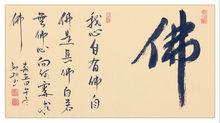 佛
我心自有佛自
佛是真佛自若
無佛心向何處求
佛